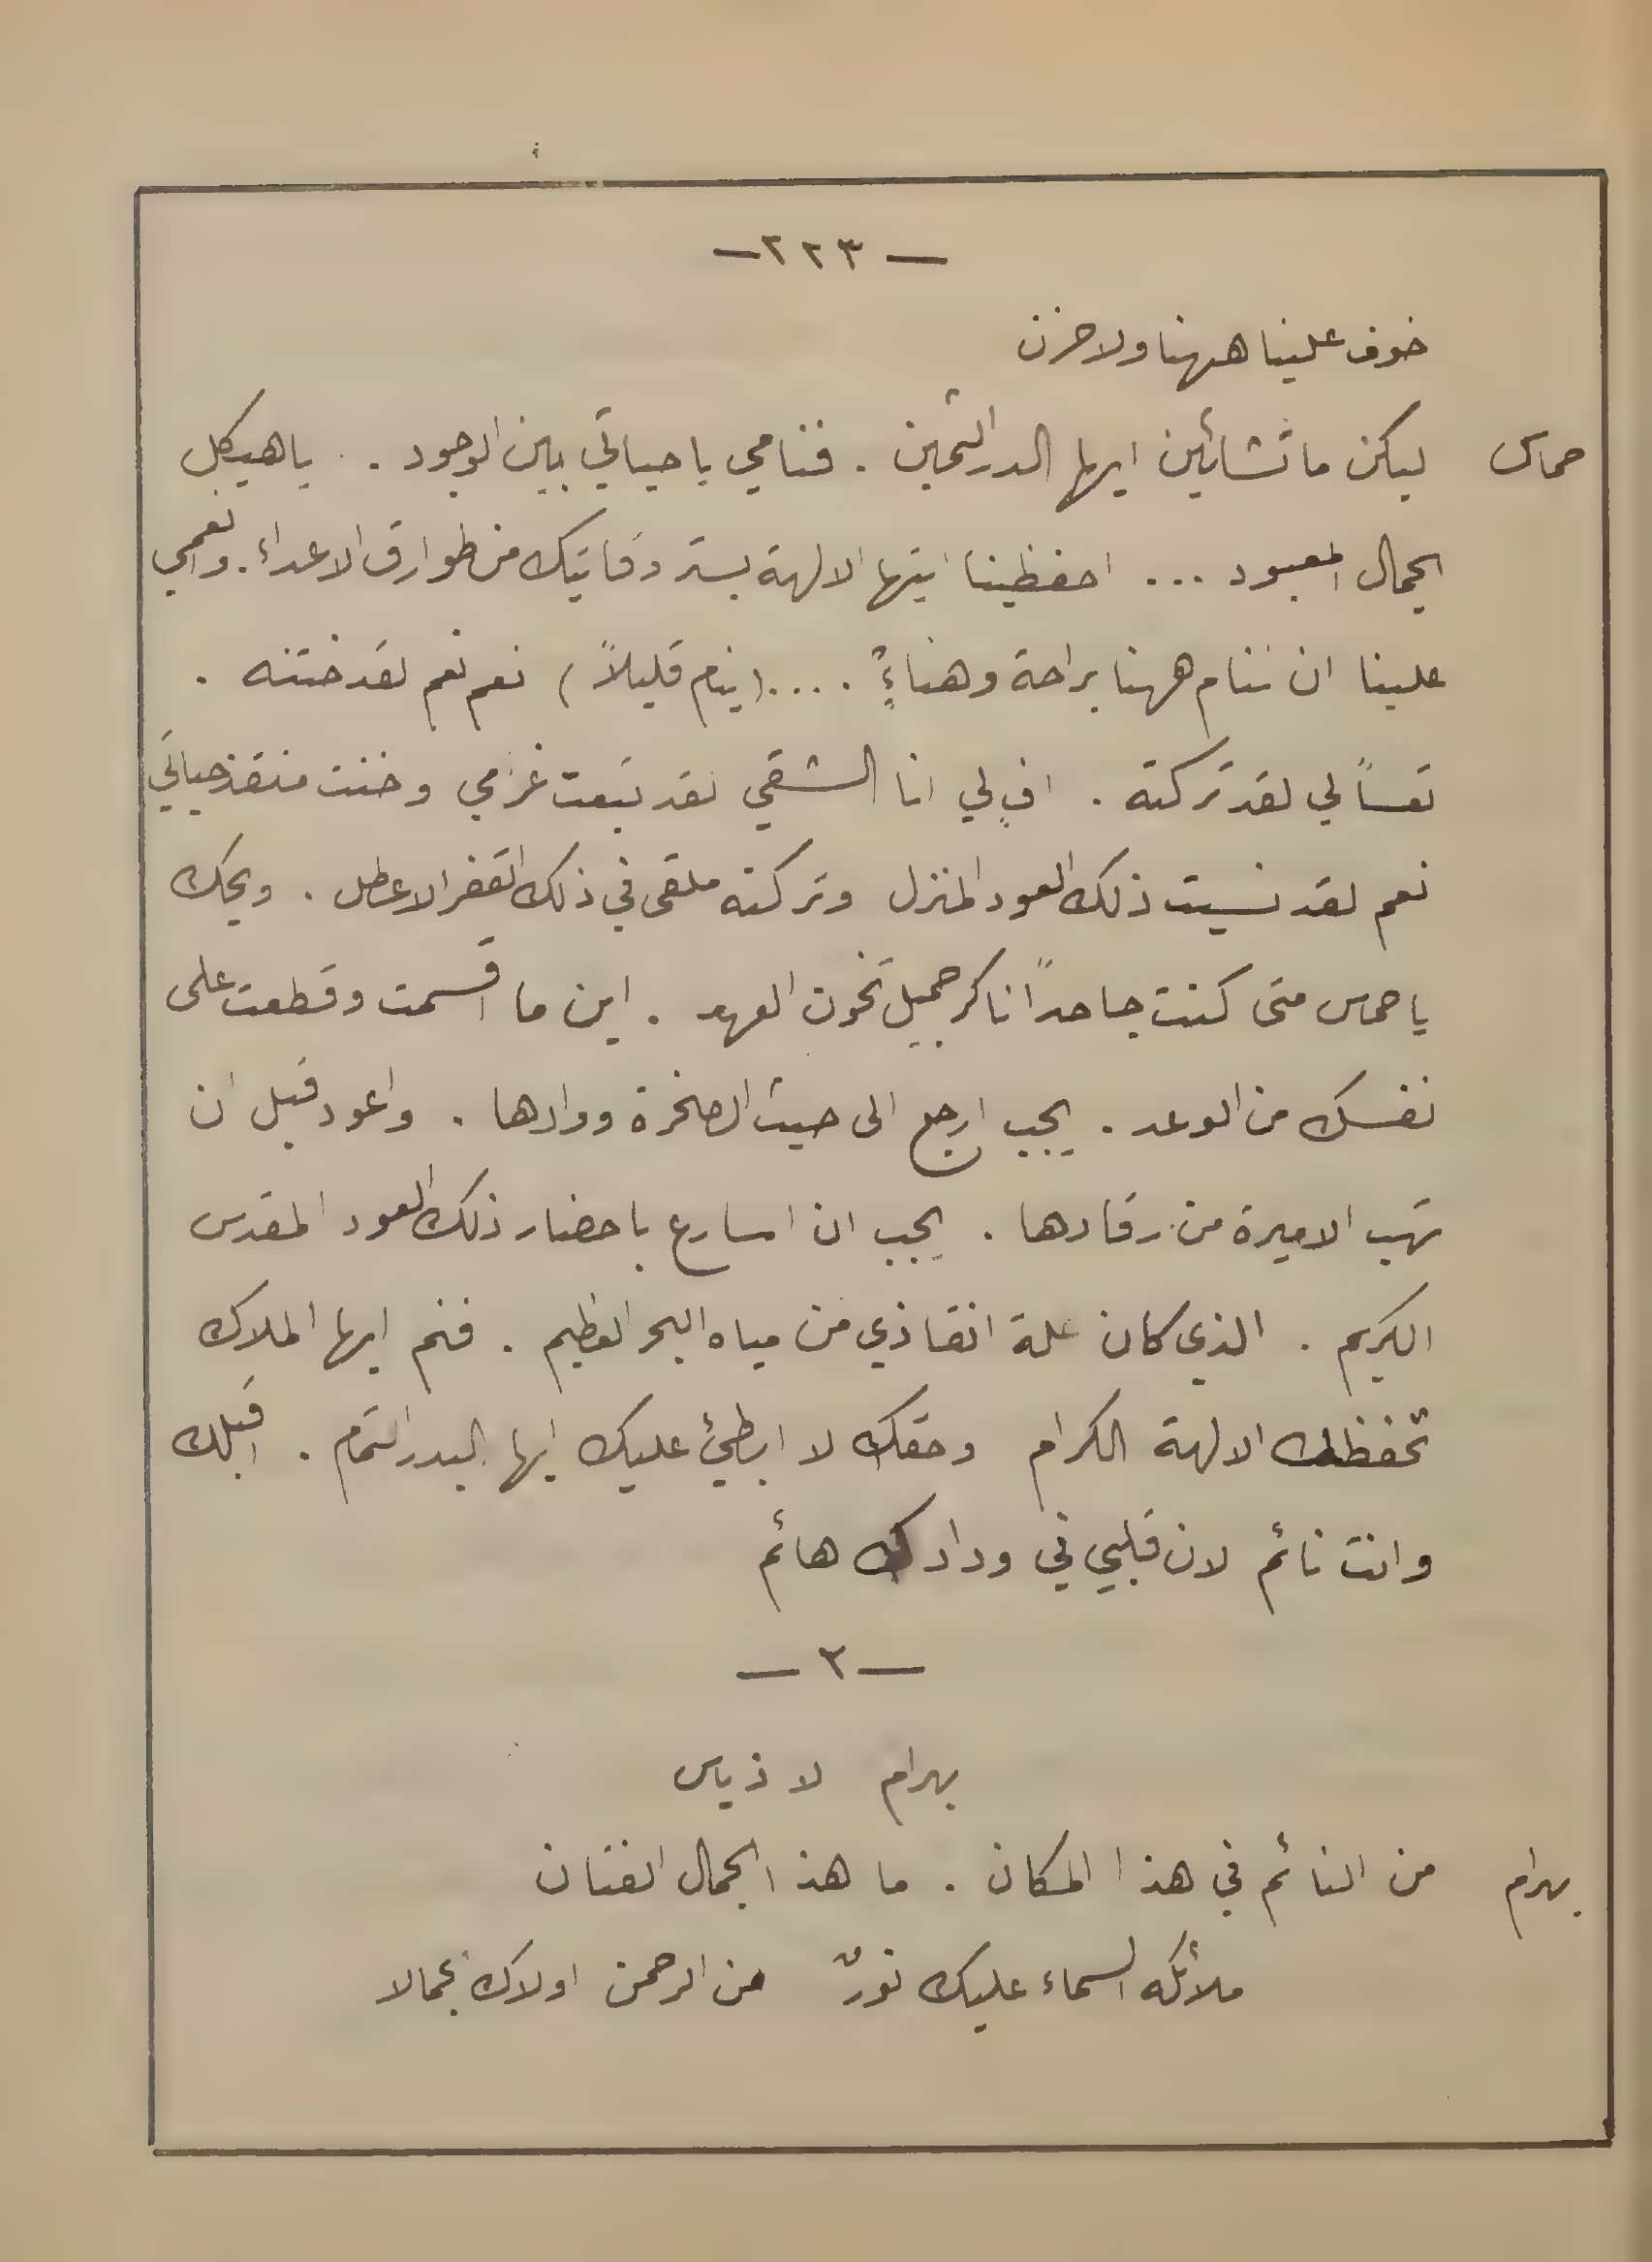 — ٣٢٢ —
خوف علينا ههنا ولا حزن
حماس ليكن ما تشائين ايها الدر الثمين . فنامي يا حياتي بين الوجود . يا هيكل
الجمال المعبود ... احفظينا ايتها الالهة بستر وقايتك من طوارق الاعداء . وانعمي
علينا ان ننام ههنا براحة وهناءٍ .... ( ينام قليلاً ) نعم نعم لقد خنته .
تعساً لي لقد تركته . افٍ لي انا الشقي لقد تبعت غرامي وخنت منقذ حياتي
نعم لقد نسيت ذلك العود المنزل وتركته ملقى في ذلك القفر الاعطل . ويحك
يا حماس متى كنت جاحداً ناكر جميل تخون العهد . اين ما اقسمت وقطعت على
نفسك من الوعد . يجب ارجع الى حيث الصخرة ووادها . واعود قبل ان
تهب الاميرة من رقادها . يجب ان اسارع باحضار ذلك العود المقدس
الكريم . الذي كان علة انقاذي من مياه البحر العظيم . فنم ايها الملاك
تحفظك الالهة الكرام وحقك لا ابطئ عليك ايها البدر التمام . اقبلك
وانت نائم لان قلبي في ودادك هائم
— ٣ —
بهرام لاذياس
بهرام من النائم في هذا المكان . ما هذا الجمال الفتان
ملائكه السماء عليك نورٌ من الرحمن اولاك جمالا